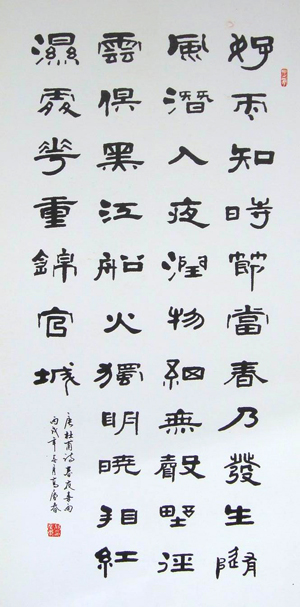 好雨知時節當春乃發生隨
風潛入夜潤物細無聲野徑
雲俱黑江船火獨明曉看紅
濕處華重錦官城
唐杜甫詩春夜喜雨
丙戌年月高春